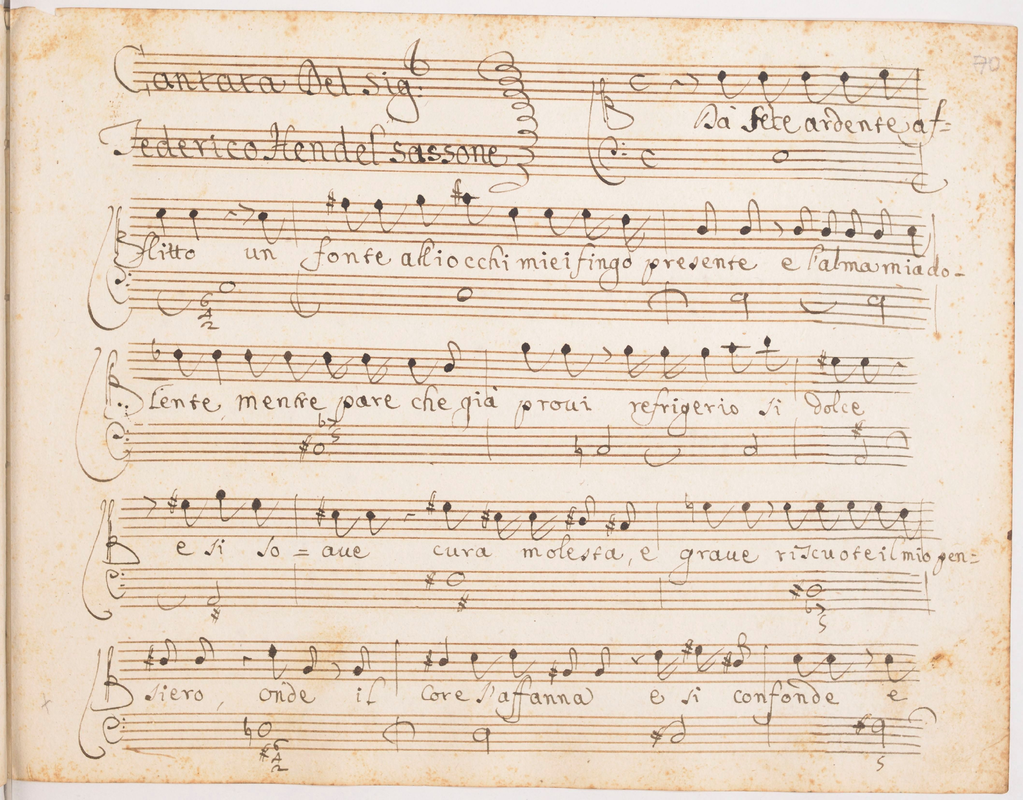 Cantata Del Sig.r
Federico Hendel Sassone
Da sete ardente af=
flitto un fonte alli occhi miei fingo presente e l'alma mia do=
lente, mentre pare che già proui refrigerio si dolce
e si so=aue cura molesta, e graue riscuote il mio pen=
siero, onde il core s'affanna e si confonde e
70